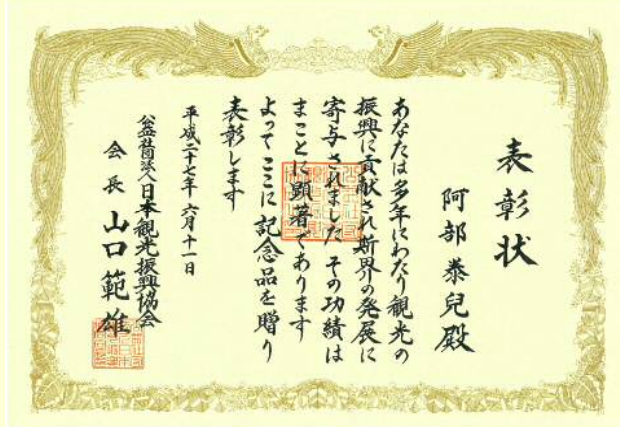 表彰状
阿部泰兒殿
あなたは多年にわたり観光の
振興に貢献され斯界の発展に
寄与されました その功績は
まことに顕著であります
よってここに記念品を贈り
表彰します
平成二十七年六月十一日
公益社団法人日本観光振興協会
会長 山口範雄